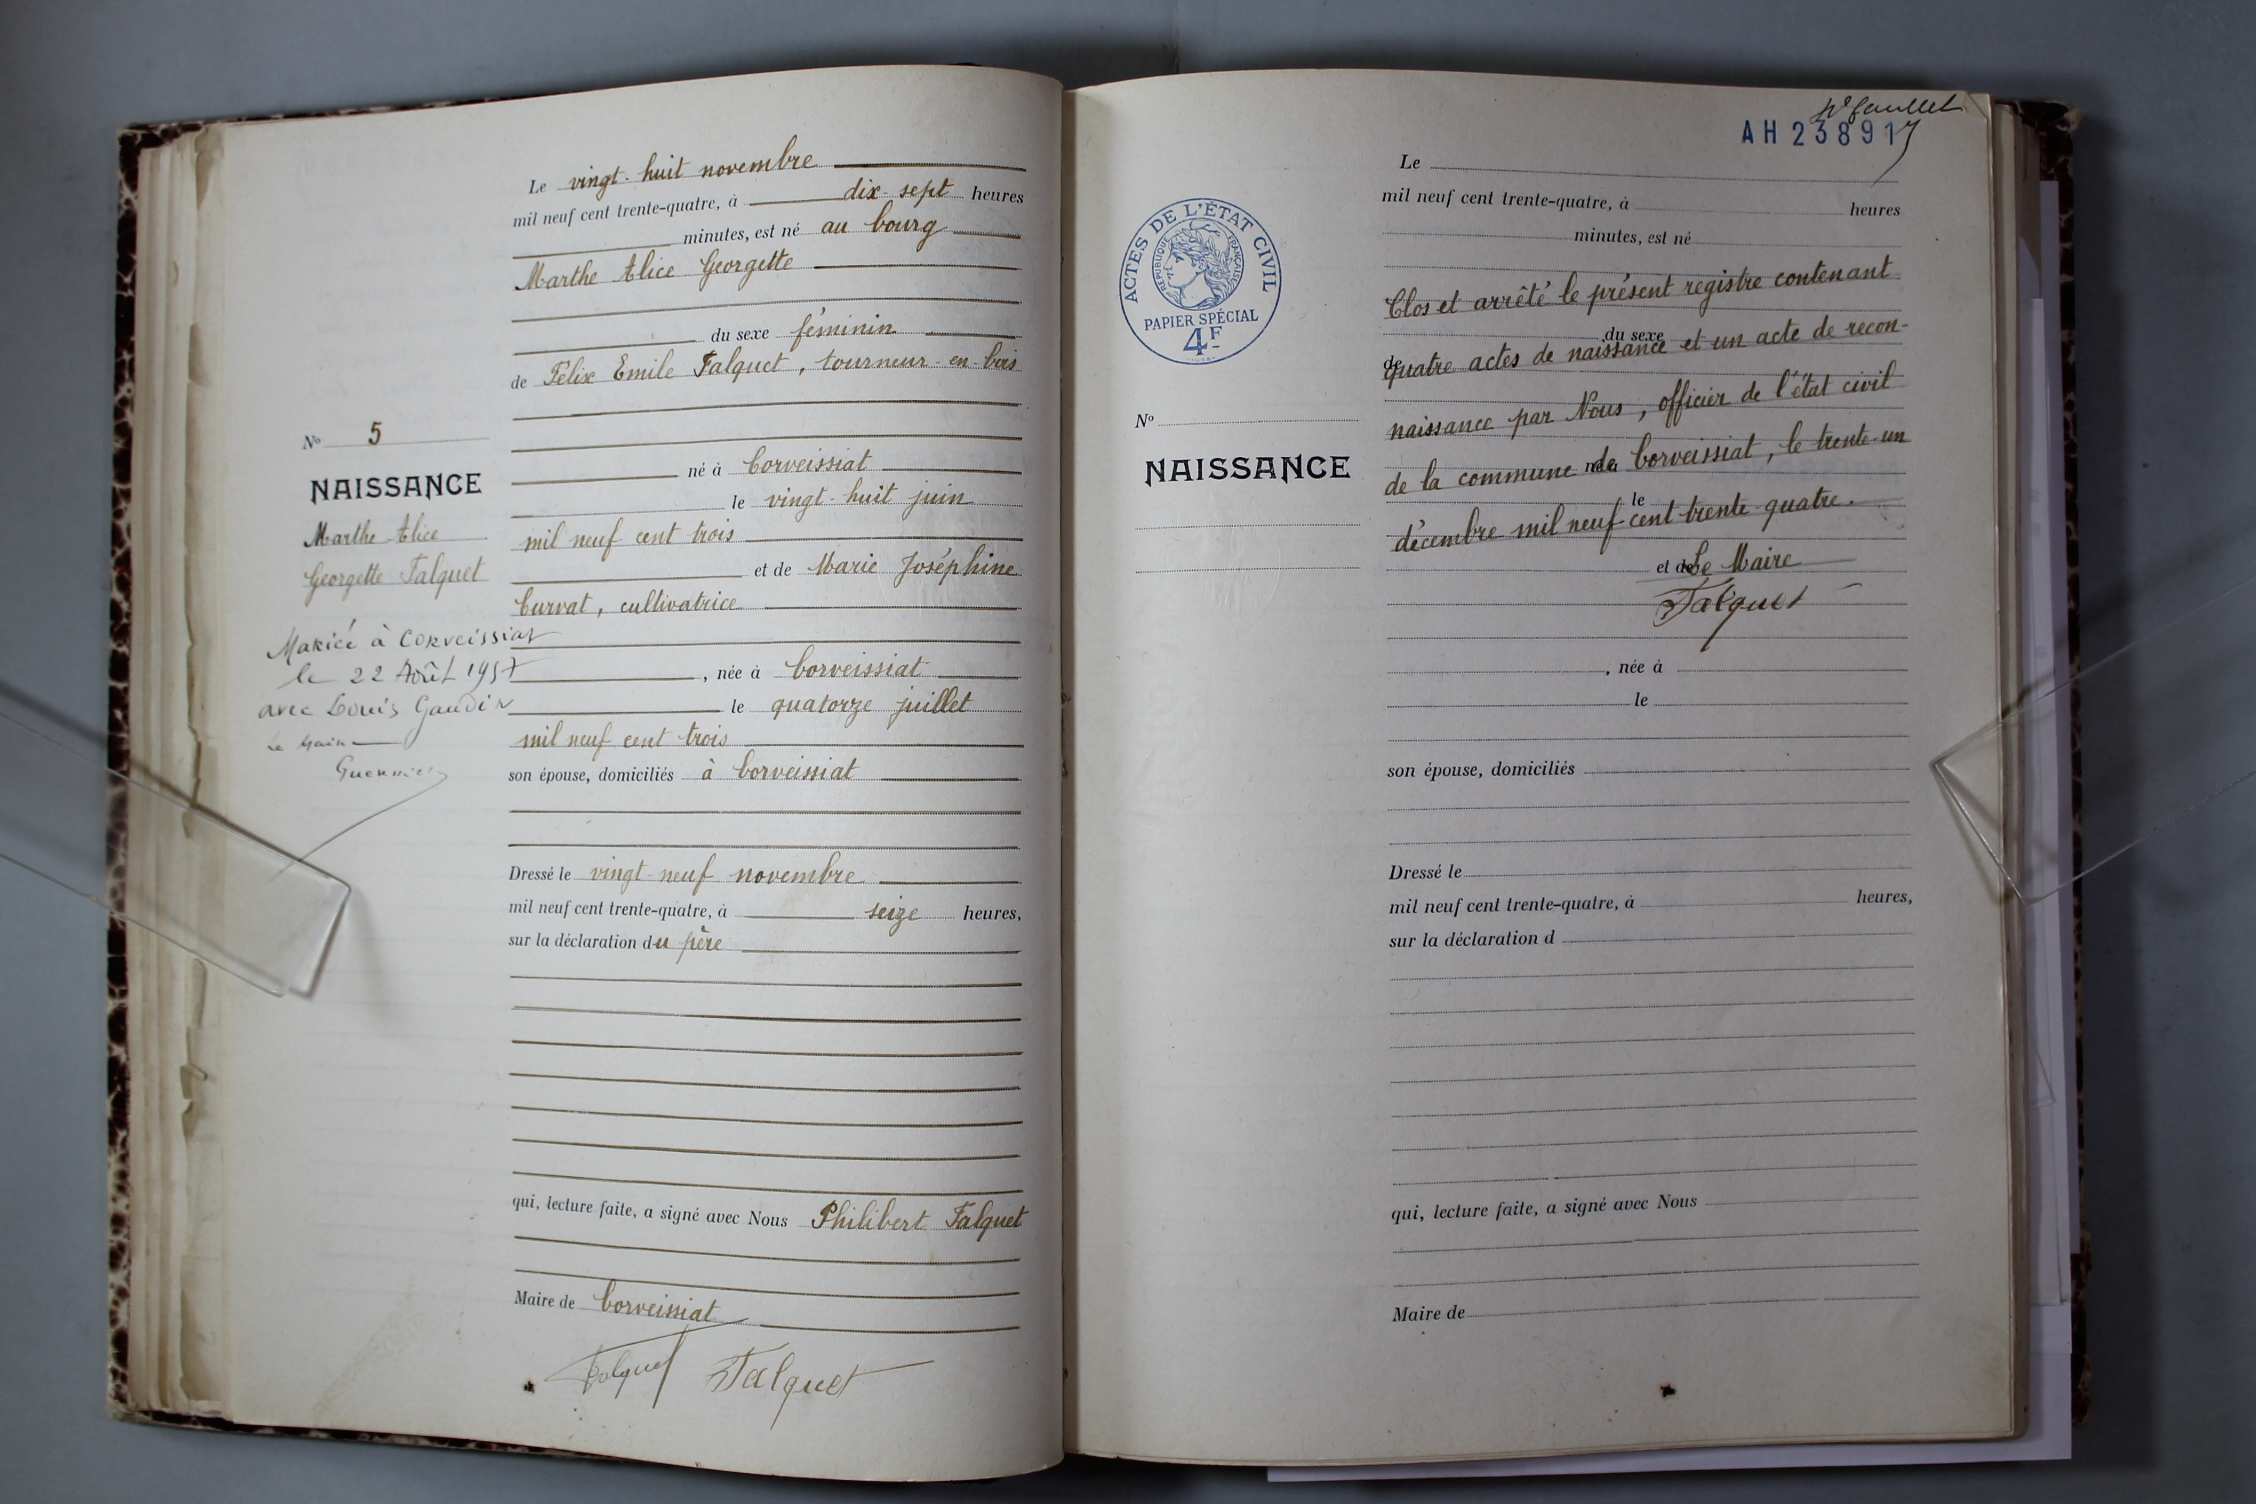 Le vingt-huit novembre
mil neuf cent trente-quatre, à dix-sept heures
minutes, est né au bourg
Marthe Alice Georgette
du sexe féminin
de Félix Emile Falquet, tourneur-en-bois
né à Corveissiat
le vingt-huit juin
mil neuf cent trois
et de Marie Joséphine
Curvat, cultivatrice
, née à Corveissiat
le quatorze juillet
mil neuf cent trois
son épouse, domiciliés à Corveissiat
Dressé le vingt-neuf novembre
mil neuf cent trente-quatre, à seize heures,
sur la déclaration du père
qui, lecture faite, a signé avec Nous Philibert Falquet
Maire de Corveissiat
Falquet Falquet
No 5
NAISSANCE
Marthe Alice
Georgette Falquet
Mariée à Corveissiat
le 22 Août 1957
avec Louis Gaudin
Le Maire
AH 238917
ACTES DE L'ÉTAT CIVIL
RÉPUBLIQUE FRANÇAISE
PAPIER SPÉCIAL
4F
No
NAISSANCE
Le
mil neuf cent trente-quatre, à heures
minutes, est né
Clos et arrêté le présent registre contenant
du sexe
de
quatre actes de naissance et un acte de recon-
naissance par Nous, officier de l'état civil
né à
de la commune de Corveissiat, le trente-un
le
décembre mil neuf cent trente-quatre.
et de
Le Maire
Falquet
, née à
le
son épouse, domiciliés
Dressé le
mil neuf cent trente-quatre, à heures,
sur la déclaration d
qui, lecture faite, a signé avec Nous
Maire de